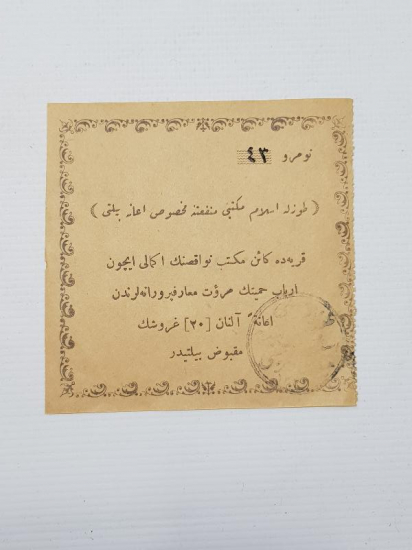 نومرو ٤٣
( طوزله اسلام مكتبی منفعتنه مخصوص اعانه بیلتی )
قریه‌ده كائن مكتب نواقصنك اكمالی ایچون
ارباب حمیتك مروت معارفپرورانه‌لرندن
اعانةً آلنان [٢٠] غروشك
مقبوض بیلتیدر